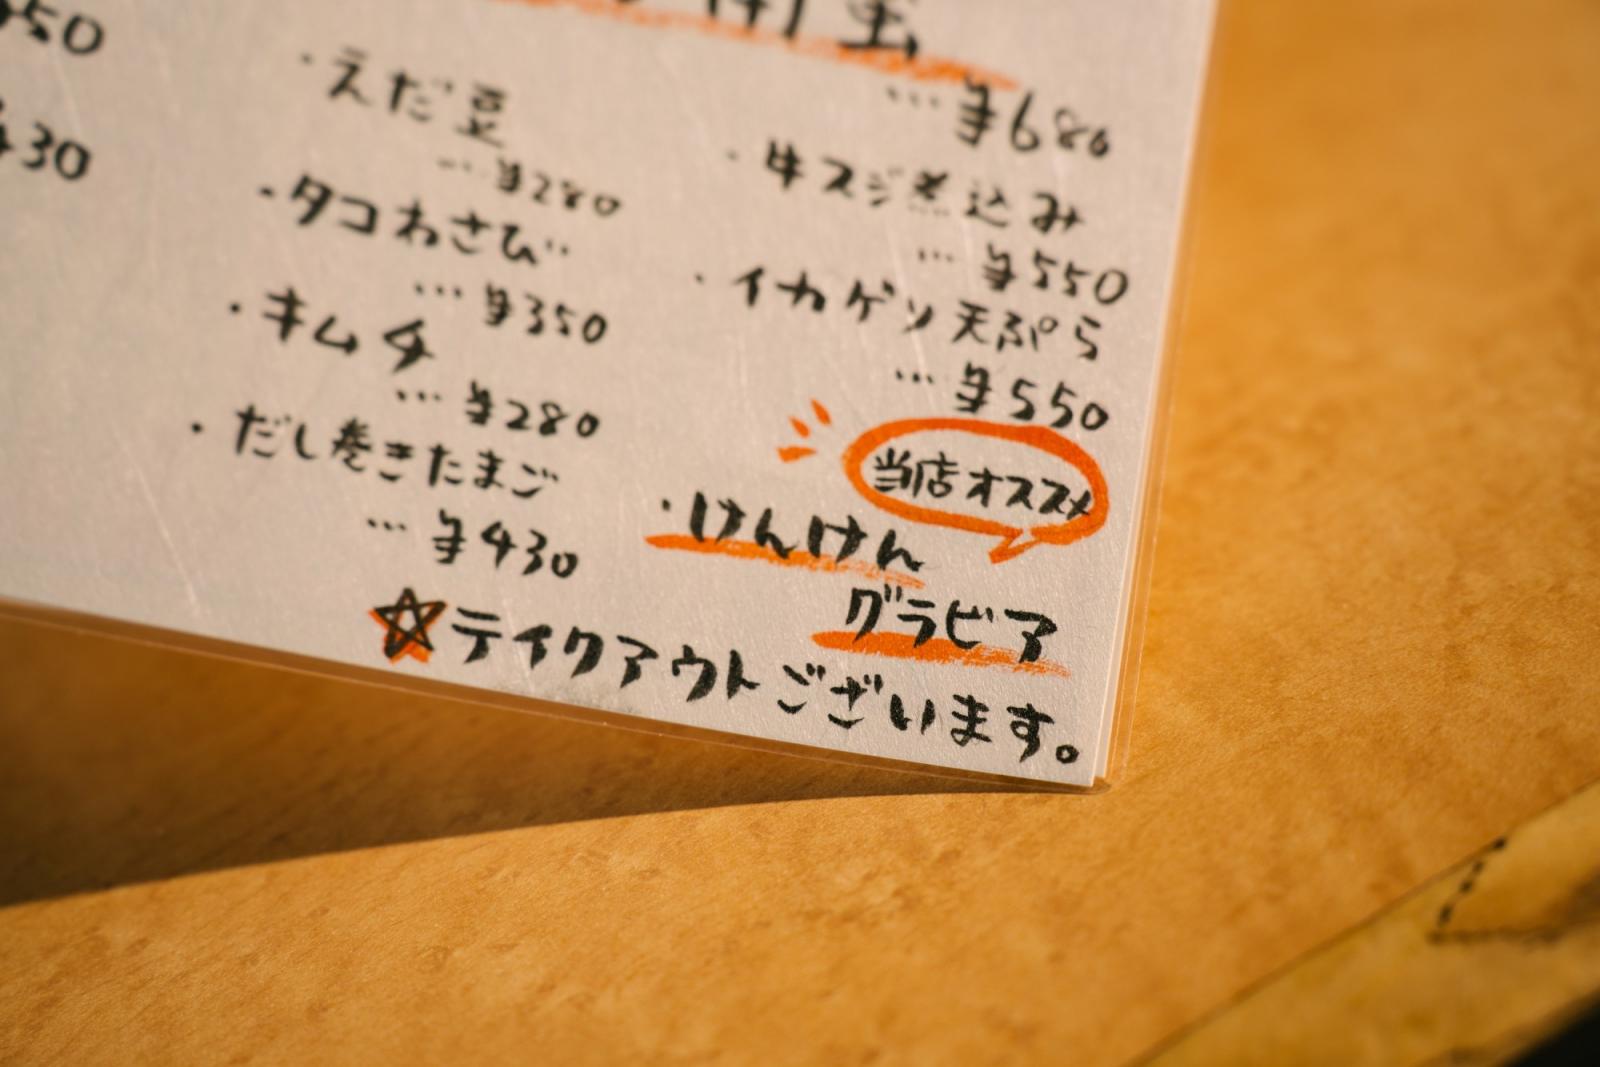 ・えだ豆
…¥280
・タコわさび
…¥350
・キムチ
…¥280
・だし巻きたまご
…¥430
…¥680
・牛スジ煮込み
…¥550
・イカゲソ天ぷら
…¥550
当店オススメ
・けんけん
グラビア
☆テイクアウトございます。